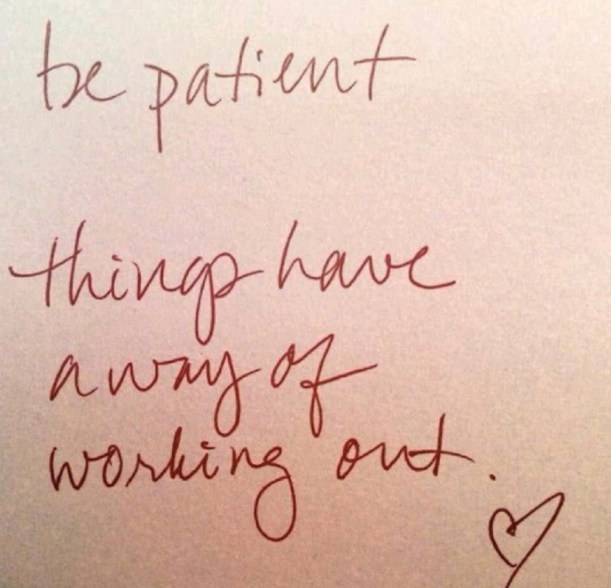 be patient
things have
a way of
working out.